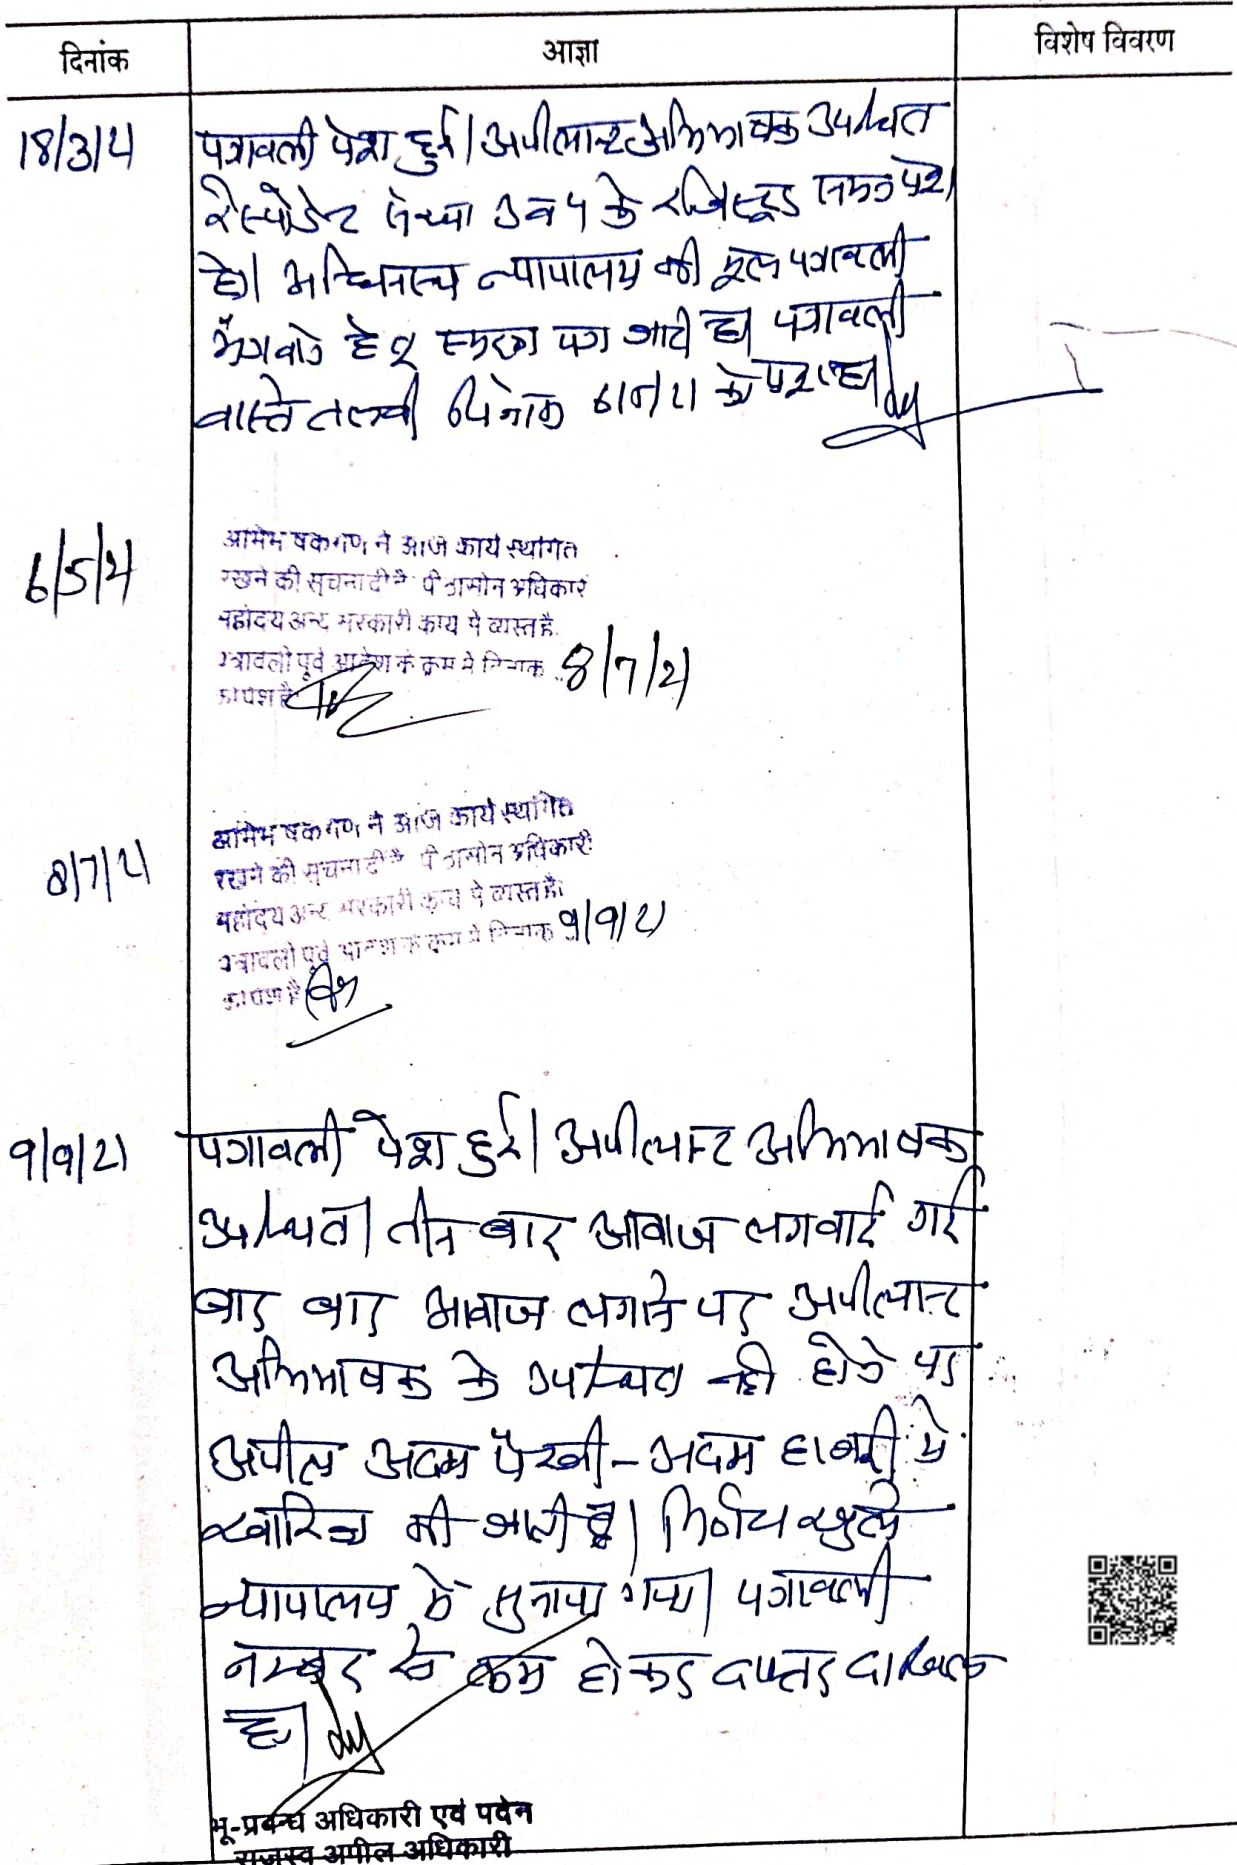 दिनांक
आज्ञा
विशेष विवरण
18/3/21
पत्रावली पेश हुई। अपीलान्ट अभिभाषक उपस्थित
रेस्पोडेन्ट संख्या 3 व 4 के रजिस्ट्रड समन पेश
हो। अधिनस्थ न्यायालय की मूल पत्रावली
मँगवाने हेतु स्मरण पत्र जारी हो। पत्रावली
वास्ते तलबी दिनांक को पेश हो।
6/5/21
अभिभाषकगण ने आज कार्य स्थगित
रखने की सूचना दी है पीठासीन अधिकारी
महोदय अन्य सरकारी कार्य में व्यस्त है.
पत्रावली पूर्व आदेश के क्रम में दिनांक 8/7/21
को पेश है
8/7/21
अभिभाषकगण ने आज कार्य स्थगित
रखने की सूचना दी है पीठासीन अधिकारी
महोदय अन्य सरकारी कार्य में व्यस्त है।
पत्रावली पूर्व आदेश के क्रम में दिनांक 9/9/21
को पेश है
9/9/21
पत्रावली पेश हुई। अपीलान्ट अभिभाषक
उपस्थित। तीन बार आवाज लगवाई गई
बार बार आवाज लगाने पर अपीलान्ट
अभिभाषक के उपस्थित नही होने पर
अपील अदम पैरवी - अदम हाजरी मे
खारिज की जाती है। निर्णय खुले
न्यायालय में सुनाया गया। पत्रावली
नम्बर से कम होकर दफ्तर दाखिल
हो।
भू-प्रबन्ध अधिकारी एवं पदेन
राजस्व अपील अधिकारी